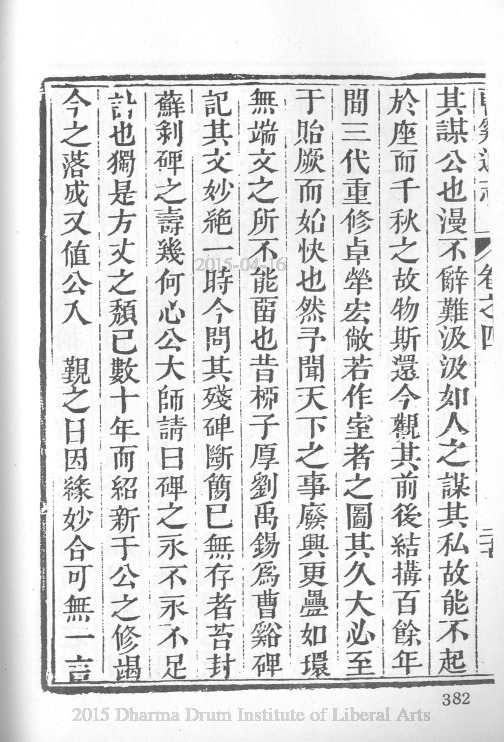 卷之四
其謀公也漫不辭難汲汲如人之謀其私故能不起
於座而千秋之故物斯還今觀其前後結搆百餘年
間三代重修卓犖宏敞若作室者之圖其久大必至
于貽厥而始快也然予聞天下之事廢興更疊如環
無端文之所不能畱也昔柳子厚劉禹錫爲曹谿碑
記其文妙絶一時今問其殘碑斷簡已無存者苔封
蘇剝碑之壽幾何心公大師請曰碑之永不永不足
計也獨是方丈之頽已數十年而紹新于公之修謁
今之落成又值公入 覲之日因緣妙合可無一言
382
2015-04-16
2015 Dharma Drum Institute of Liberal Arts